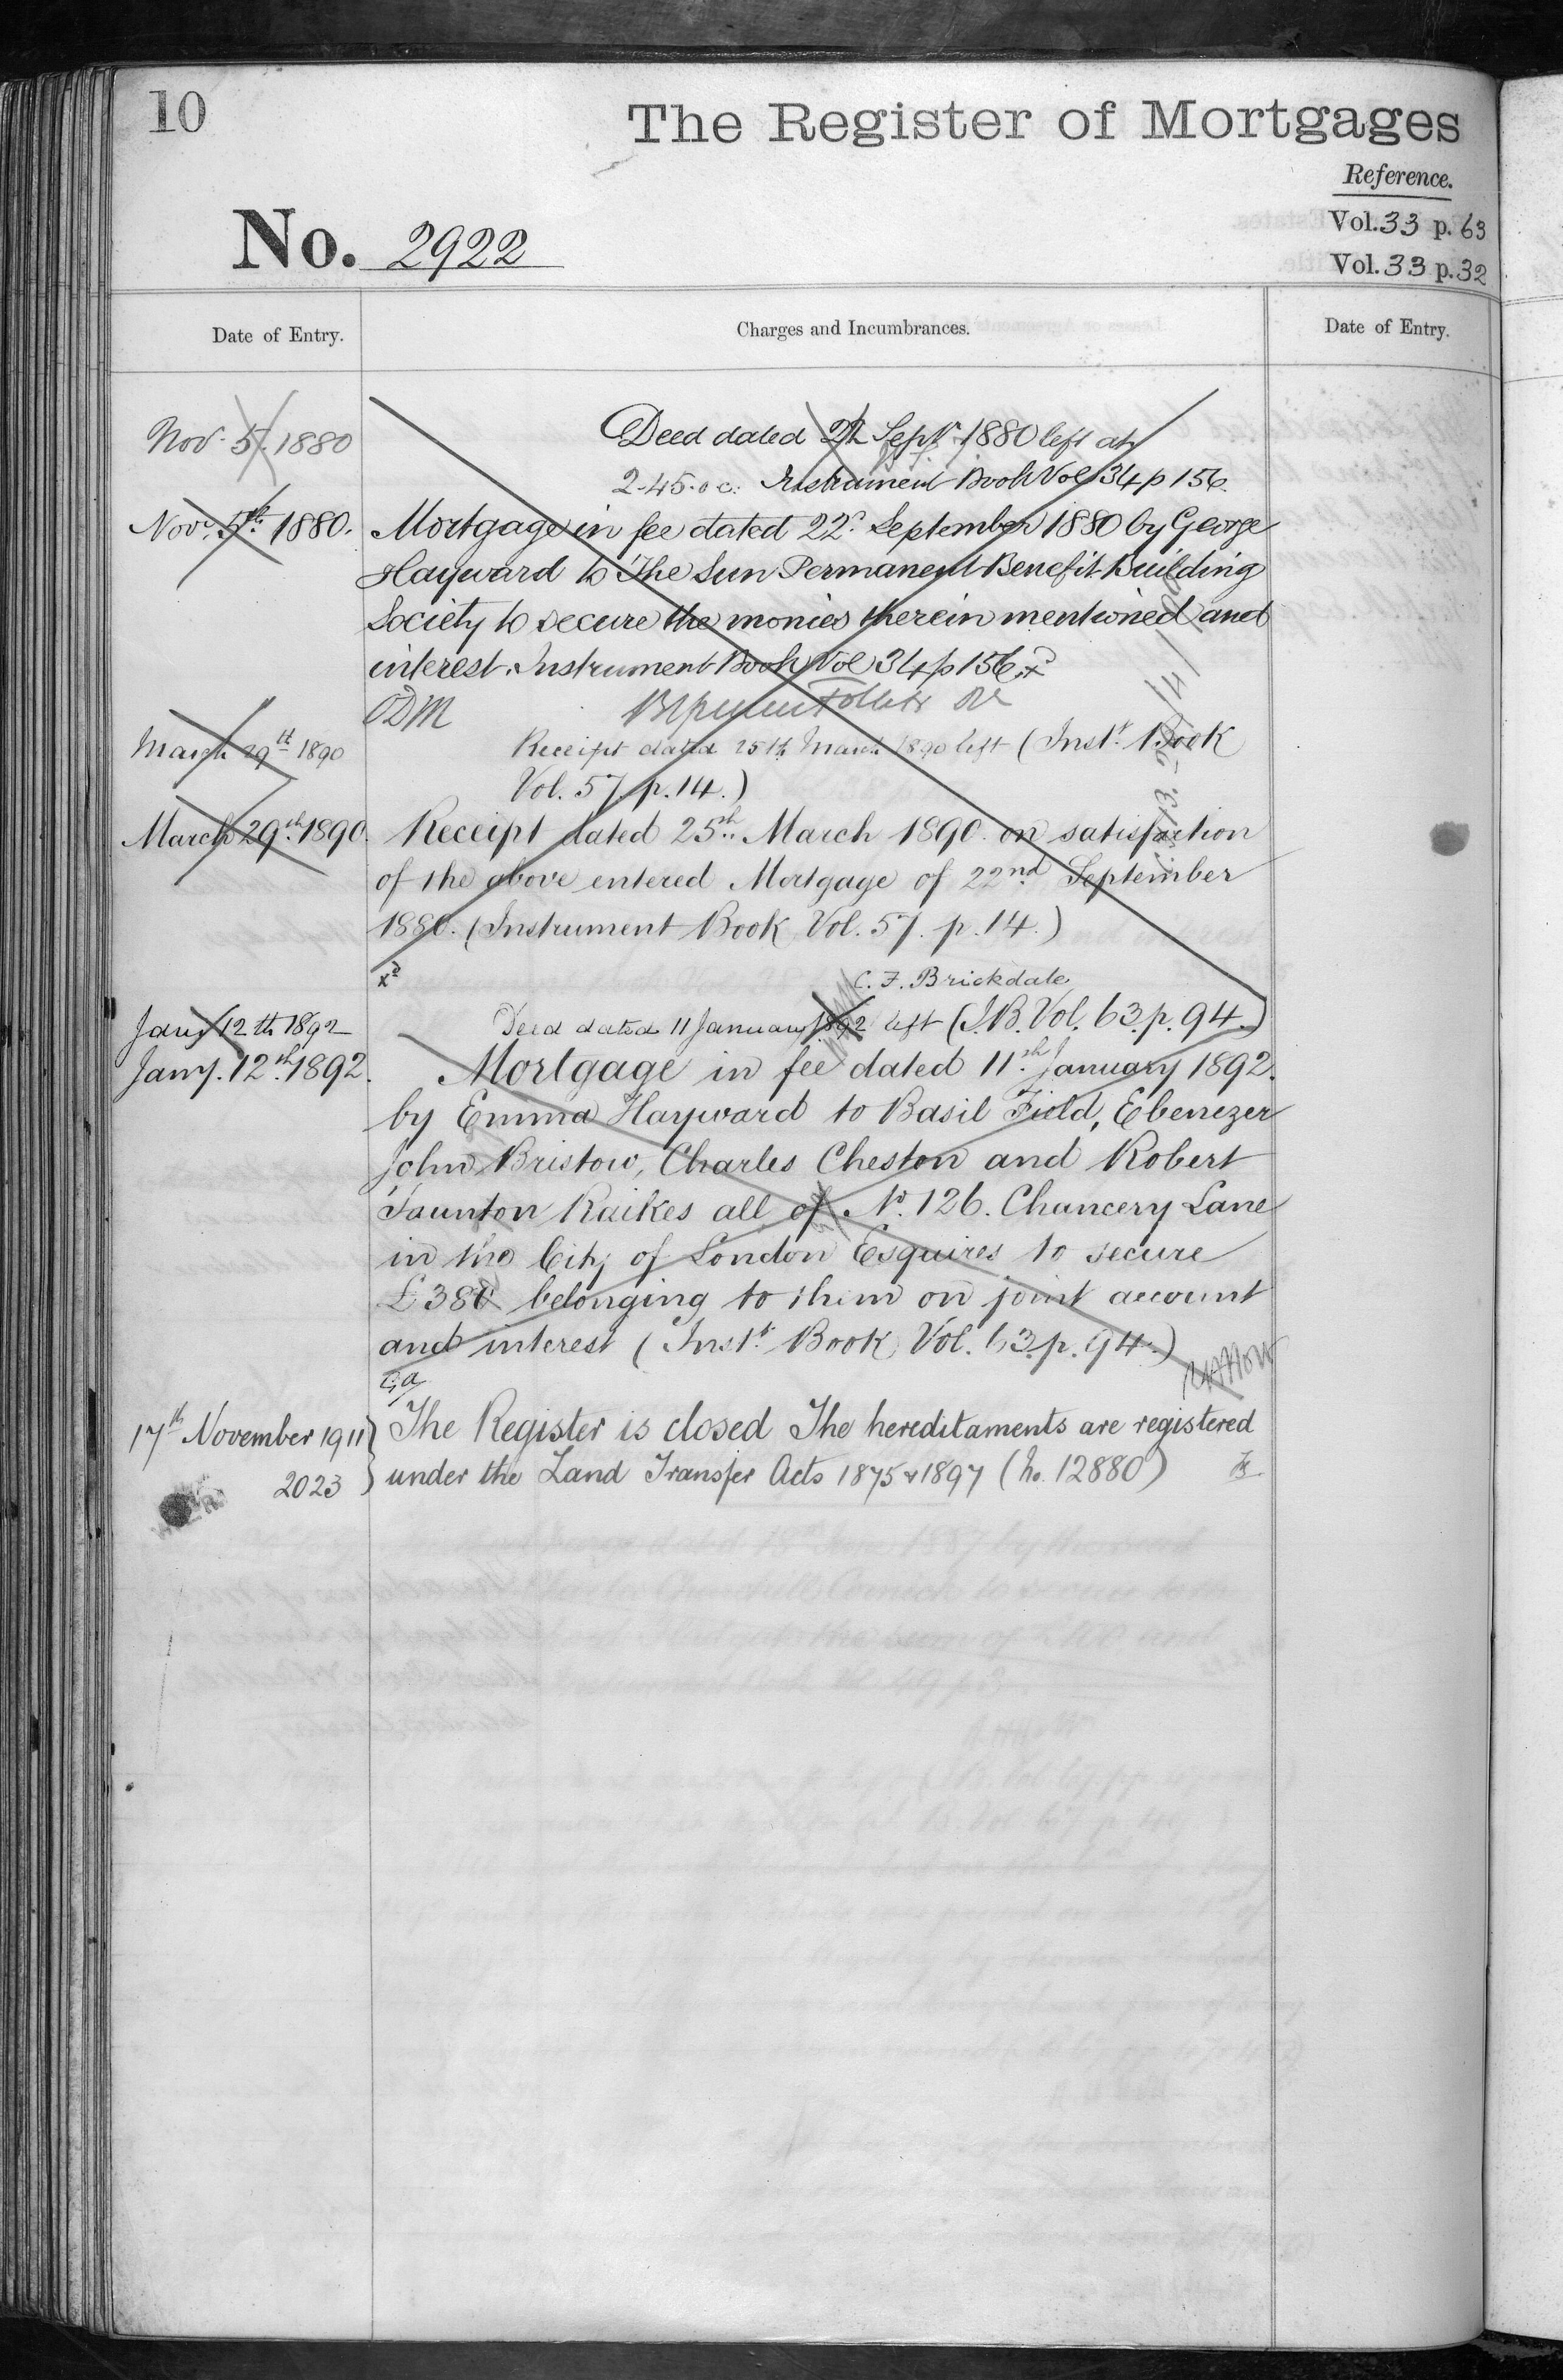 10
The Register of Mortgages
Reference.
Vol. 33 p. 63
No. 2922
Vol. 33 p. 32
Date of Entry.
Charges and Incumbrances.
Date of Entry.
Nov. 5. 1880
Deed dated 22 Septr. 1880 left at
2.45. oc. Instrument Book Vol 34 p 156.
Novr. 5th 1880.
Mortgage in fee dated 22d September 1880 by George
Hayward to The Sun Permanent Benefit Building
Society to secure the monies therein mentioned and
interest. Instrument Book Vol 34 p 156.
ODM
March 29th 1890
Receipt dated 25th March 1890 left (Instt. Book
Vol. 57. p. 14.)
March 29th 1890.
Receipt dated 25th March 1890 on satisfaction
of the above entered Mortgage of 22nd September
1880. (Instrument Book Vol. 57. p. 14.)
C. F. Brickdale
Jany 12th 1892
Deed dated 11 January 1892 left (I.B. Vol. 63. p. 94.)
Jany. 12th 1892.
Mortgage in fee dated 11th January 1892.
by Emma Hayward to Basil Field, Ebenezer
John Bristow, Charles Cheston and Robert
Taunton Raikes all of No. 126. Chancery Lane
in the City of London Esquires to secure
£380 belonging to them on joint account
and interest (Instt. Book Vol. 63. p. 94.)
17th November 1911
The Register is closed The hereditaments are registered
2023
under the Land Transfer Acts 1875 & 1897 (No. 12880)